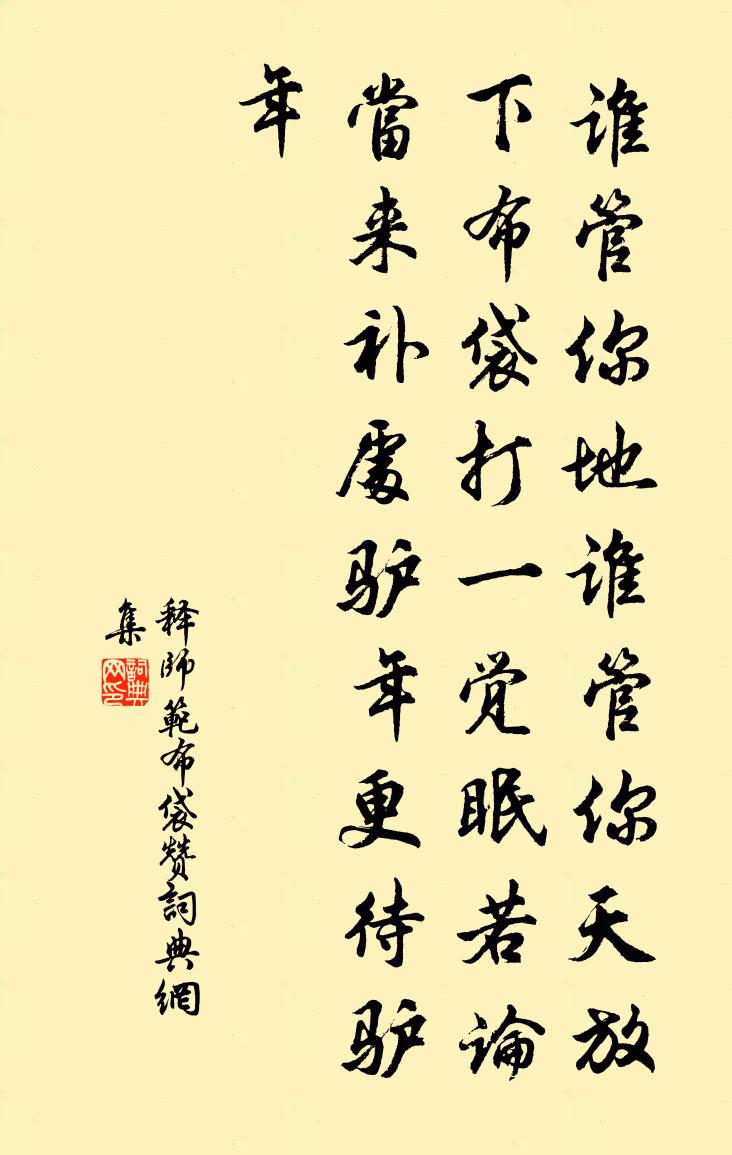 谁管你地谁管你天放
下布袋打一觉眠若論
當来补處驴年更待驴
年
释師範布袋赞詞典網
集
詞典
网印